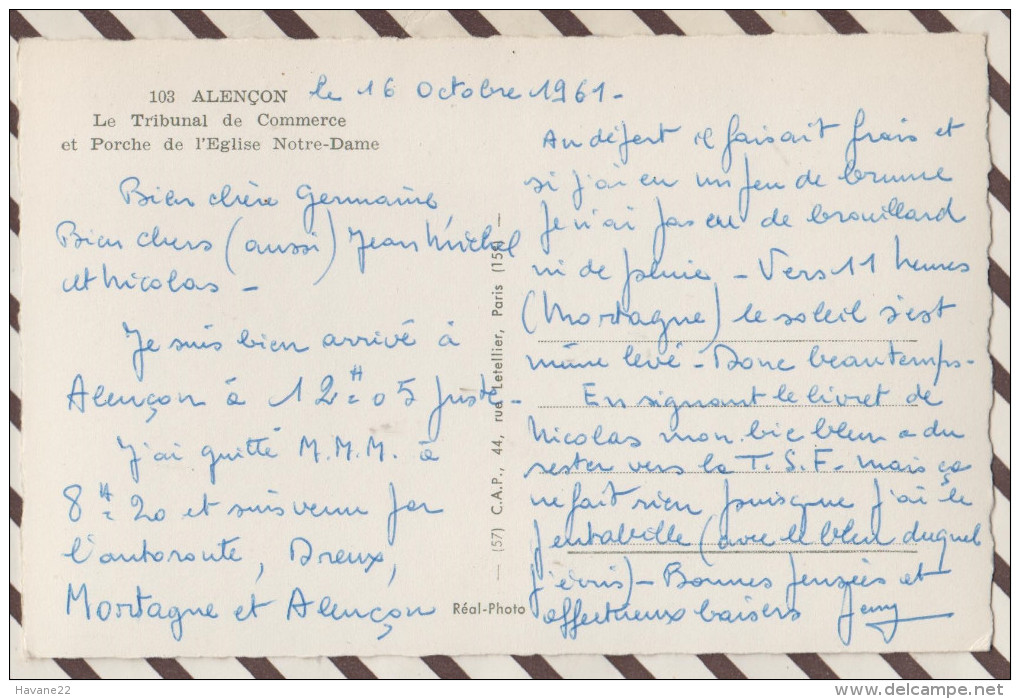 103 ALENÇON
Le Tribunal de Commerce
et Porche de l'Eglise Notre-Dame
le 16 Octobre 1961-
Bien chère Germaine
Bien chers (aussi) Jean Michel
et Nicolas -
Je suis bien arrivé à
Alençon à 12H05 juste-
J'ai quitté M.M.M. à
8H20 et suis venu par
l'autoroute, Dreux,
Mortagne et Alençon
— (57) C.A.P., 44, rue Letellier, Paris (15e) —
Réal-Photo
Au départ il faisait frais et
si j'ai eu un peu de brume
Je n'ai pas eu de brouillard
ni de pluie - Vers 11 heures
(Mortagne) le soleil s'est
même levé - Donc beau temps-
En signant le livret de
Nicolas mon bic bleu a du
rester vers la T.S.F. mais ça
ne fait rien puisque j'ai le
(avec le bleu duquel
j'écris) - Bonnes pensées et
affectueux baisers
Havane22
www.delcampe.net